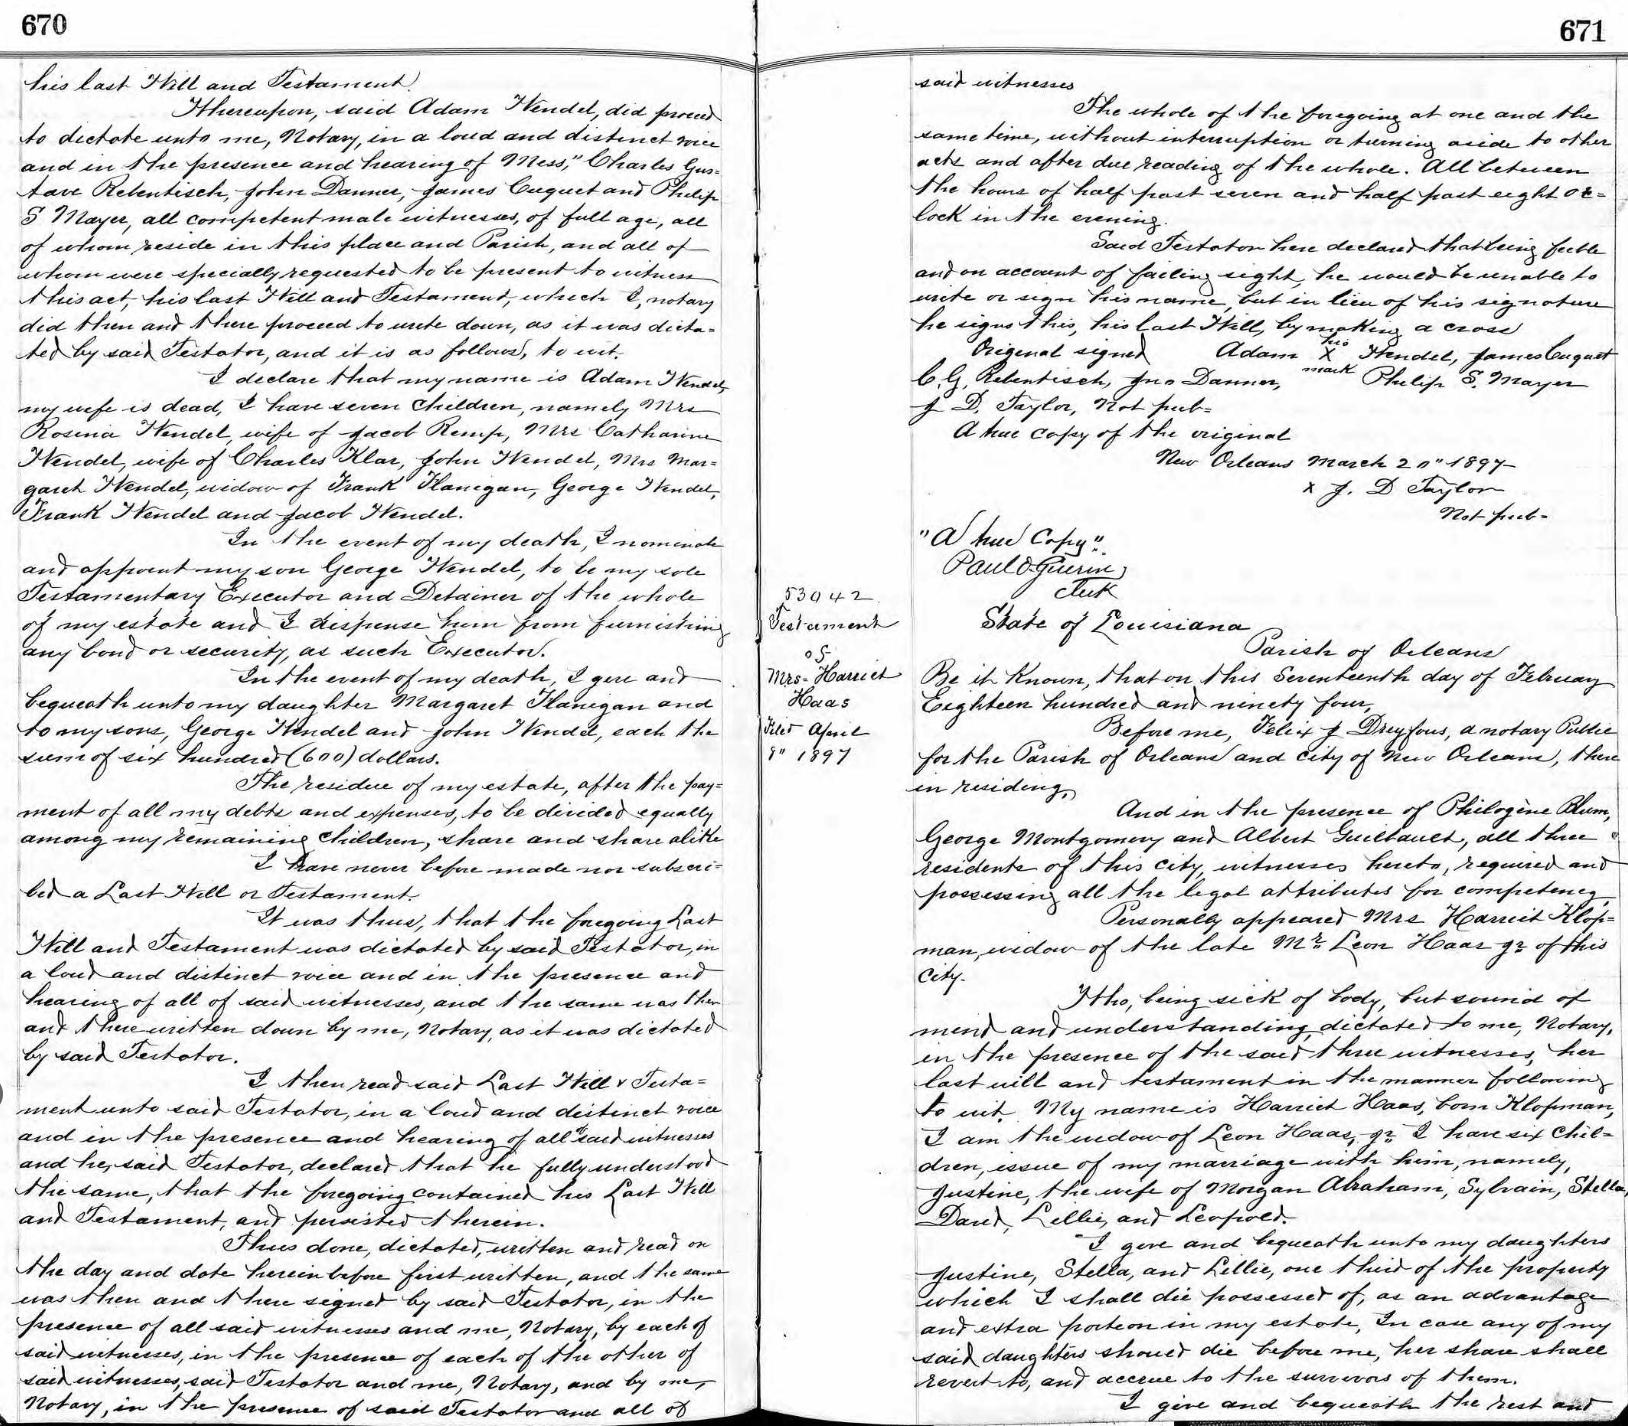 670
his last Will and Testament.
Whereupon, said Adam Wendel, did proceed
to dictate unto me, Notary, in a loud and distinct voice
and in the presence and hearing of Mess," Charles Gus=
tave Rebentisch, John Danner, James Cuquet and Philip
S Mayer, all competent male witnesses, of full age, all
of whom reside in this place and Parish, and all of
whom were specially requested to be present to witness
this act, his last Will and Testament, which I, notary
did then and there proceed to write down, as it was dicta=
ted by said Testator, and it is as follows, to wit.
I declare that my name is Adam Wendel,
my wife is dead, I have seven children, namely Mrs
Rosina Wendel, wife of Jacob Remp, Mrs Catharine
Wendel, wife of Charles Klar, John Wendel, Mrs Mar=
garet Wendel, widow of Frank Flanigan, George Wendel,
Frank Wendel and Jacob Wendel.
In the event of my death, I nominate
and appoint my son George Wendel, to be my sole
Testamentary Executor and Detainer of the whole
of my estate and I dispense him from furnishing
any bond or security, as such Executor.
In the event of my death, I give and
bequeath unto my daughter Margaret Flanigan and
to my sons, George Wendel and John Wendel, each the
sum of six hundred (600) dollars.
The residue of my estate, after the pay=
ment of all my debts and expenses, to be divided equally
among my remaining children, share and share alike
I have never before made nor subscri=
bed a Last Will or Testament.
It was thus, that the foregoing Last
Will and Testament was dictated by said Testator, in
a loud and distinct voice and in the presence and
hearing of all of said witnesses, and the same was then
and there written down by me, Notary, as it was dictated
by said Testator.
I then read said Last Will & Testa=
ment unto said Testator, in a loud and distinct voice
and in the presence and hearing of all said witnesses
and he, said Testator, declared that he fully understood
the same, that the foregoing contained his Last Will
and Testament, and persisted therein.
Thus done, dictated, written and read on
the day and date herein before first written, and the same
was then and there signed by said Testator, in the
presence of all said witnesses and me, Notary, by each of
said witnesses, in the presence of each of the other of
said witnesses, said Testator and me, Notary, and by me,
Notary, in the presence of said Testator and all of
671
said witnesses
The whole of the foregoing at one and the
same time, without interruption or turning aside to other
acts and after due reading of the whole. All between
the hours of half past seven and half past eight oc=
lock in the evening.
Said Testator here declared that being feeble
and on account of failing sight, he would be unable to
write or sign his name, but in lieu of his signature
he signs this, his last Will, by making a cross
Original signed Adam his X mark Wendel, James Cuquet
C. G. Rebentisch, Jno Danner, Philip S. Mayer
J D. Taylor, Not pub=
A true copy of the original
New Orleans March 20" 1897
x J. D Taylor
Not pub=
"A true Copy"
Paul O. Guerin,
Clerk
53042
Testament
of
Mrs- Harriet
Haas
Filed April
8" 1897
State of Louisiana
Parish of Orleans
Be it Known, that on this Seventeenth day of February
Eighteen hundred and ninety four,
Before me, Felix J Dreyfous, a notary Public
for the Parish of Orleans and City of New Orleans, there
in residing,
And in the presence of Philogène Blum,
George Montgomery and Albert Guilbault, all three
residents of this city, witnesses hereto, required and
possessing all the legal attributes for competency,
Personally appeared Mrs Harriet Klop=
man, widow of the late Mr. Leon Haas Jr of this
City.
Who, being sick of body, but sound of
mind and understanding dictated to me, Notary,
in the presence of the said three witnesses, her
last will and testament in the manner following
to wit. My name is Harriet Haas, born Klopman,
I am the widow of Leon Haas, Jr. I have six chil=
dren, issue of my marriage with him, namely,
Justine, the wife of Morgan Abraham, Sylvain, Stella,
David, Lillie, and Leopold.
"I give and bequeath unto my daughters
Justine, Stella, and Lillie, one third of the property
which I shall die possessed of, as an advantage
and extra portion in my estate, In case any of my
said daughters should die before me, her share shall
revert to, and accrue to the survivors of them.
I give and bequeath the rest and